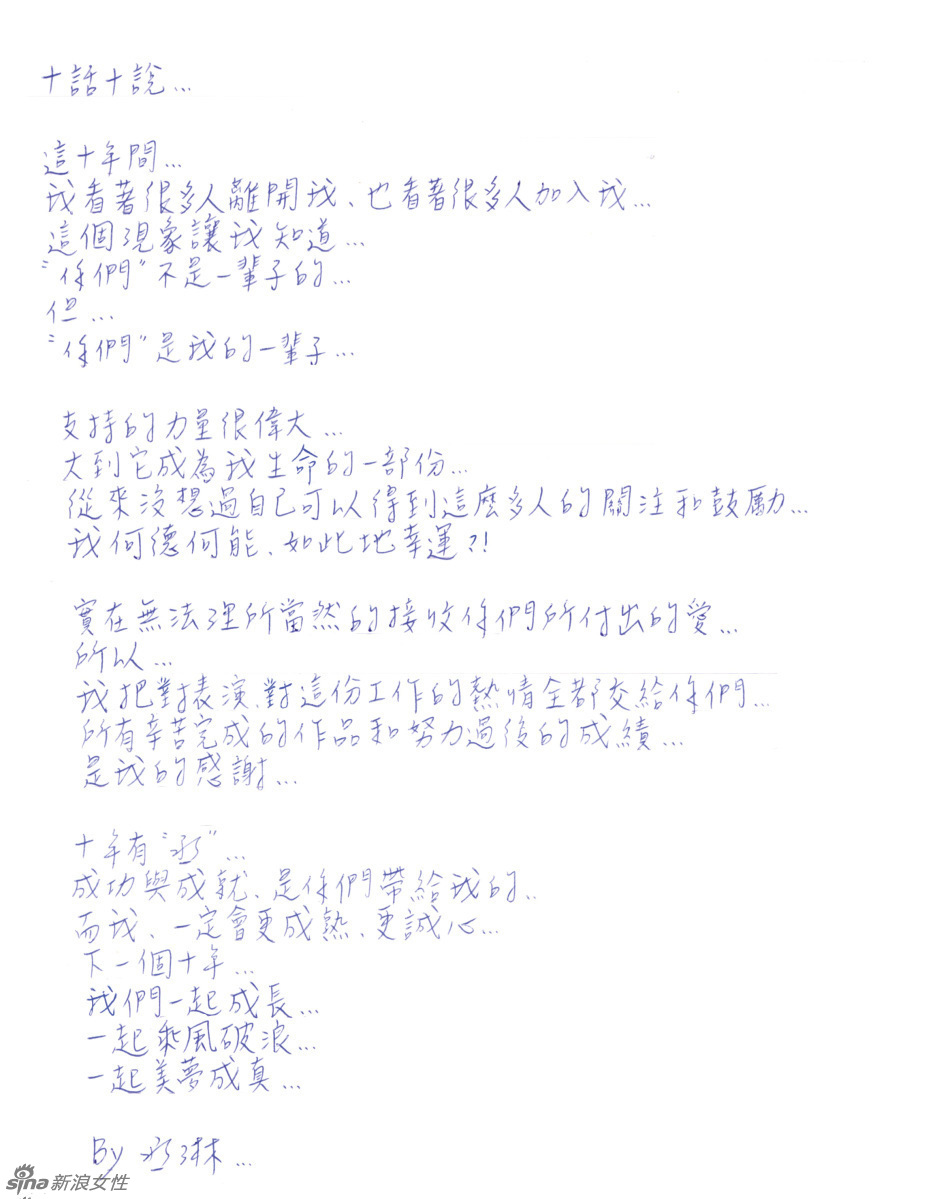 十話十說...
這十年間...
我看著很多人離開我、也看著很多人加入我...
這個現象讓我知道...
"你們"不是一輩子的...
但...
"你們"是我的一輩子...
支持的力量很偉大...
大到它成為我生命的一部份...
從來沒想過自己可以得到這麼多人的關注和鼓勵...
我何德何能、如此地幸運?!
實在無法理所當然的接收你們所付出的愛...
所以...
我把對表演、對這份工作的熱情全都交給你們...
所有辛苦完成的作品和努力過後的成績...
是我的感謝...
十年有"丞"...
成功與成就、是你們帶給我的..
而我、一定會更成熟、更誠心...
下一個十年...
我們一起成長...
一起乘風破浪...
一起美夢成真...
By 丞琳...
sina新浪女性